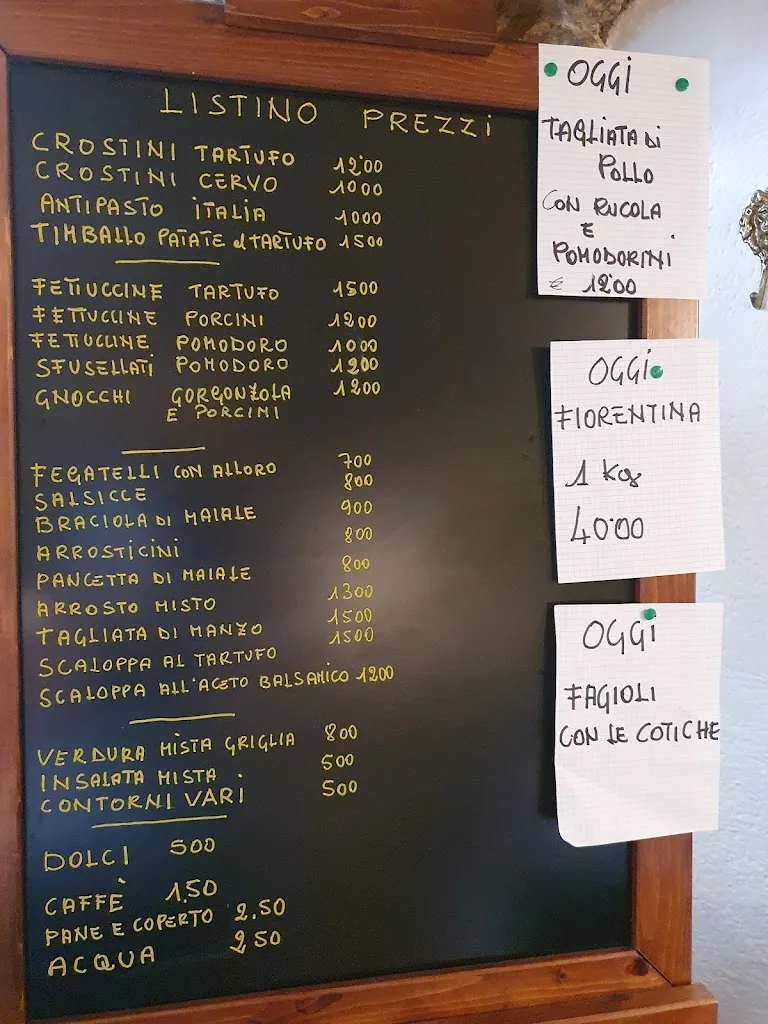 LISTINO PREZZI
CROSTINI TARTUFO 12'00
CROSTINI CERVO 1000
ANTIPASTO ITALIA 1000
TIMBALLO PATATE e TARTUFO 1500
FETTUCCINE TARTUFO 1500
FETTUCCINE PORCINI 1200
FETTUCCINE POMODORO 1000
SFUSELLATI POMODORO 1200
GNOCCHI GORGONZOLA 1200
E PORCINI
FEGATELLI CON ALLORO 700
SALSICCE 800
BRACIOLA DI MAIALE 900
ARROSTICINI 800
PANCETTA DI MAIALE 800
ARROSTO MISTO 1300
TAGLIATA DI MANZO 1500
SCALOPPA AL TARTUFO 1500
SCALOPPA ALL'ACETO BALSAMICO 1200
VERDURA MISTA GRIGLIA 800
INSALATA MISTA 500
CONTORNI VARI 500
DOLCI 500
CAFFÈ 1.50
PANE E COPERTO 2.50
ACQUA 250
OGGI
TAGLIATA DI
POLLO
CON RUCOLA
E
POMODORINI
€ 12'00
OGGI
FIORENTINA
1 Kg
40'00
OGGI
FAGIOLI
CON LE COTICHE